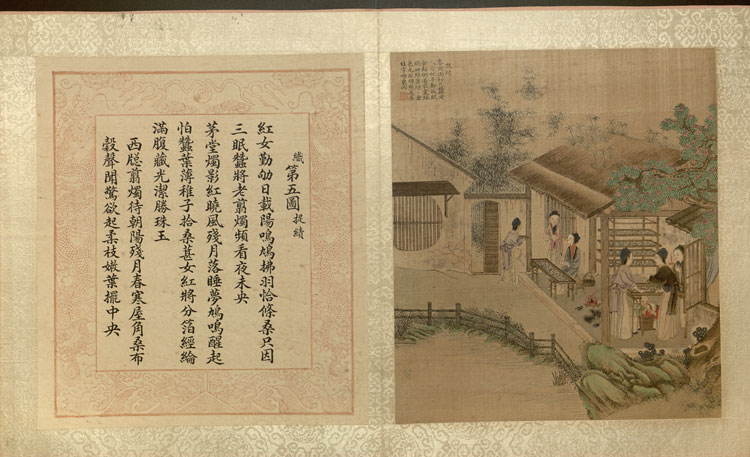 織第五圖 捉績
紅女勤劬日載陽鳴鳩拂羽恰條桑只因
三眠蠶將老翦燭頻看夜未央
茅堂燭影紅曉風殘月落睡夢鳩鳴醒起
怕蠶葉薄稚子拾桑葚女紅將分箔經綸
滿腹藏光潔勝珠玉
西牕翦燭待朝陽殘月春寒屋角桑布
穀聲聞驚欲起柔枝嫩葉擺中央